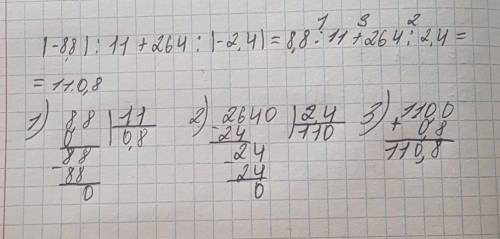 1 3 2
|-8,8| : 11 + 264 : |-2,4| = 8,8 : 11 + 264 : 2,4 =
= 110,8
1) 8,8 | 11 2) 2640 | 2,4 3) 110,0
0 0,8 - 24 110 + 0,8
88 - 24 110,8
- 88 24
0 0